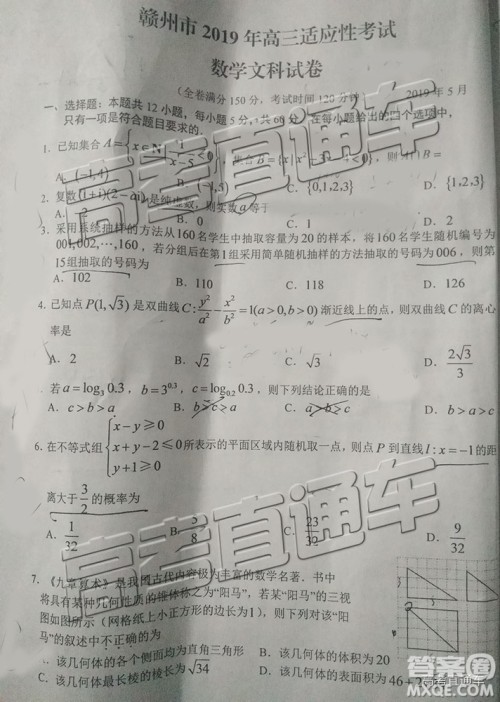 赣州市2019年高三适应性考试
数学文科试卷
(全卷满分150分，考试时间120分钟) 2019年5月
一、选择题：本题共12小题，每小题5分，共60分，在每小题给出的四个选项中，
只有一项是符合题目要求的.
1. 已知集合A={x∈N
A. (-1,4) B. (-1,5) C. {0,1,2,3} D. {1,2,3}
2. 复数(1+i)(2-ai)是纯虚数，则实数a等于
C. 1 D. 2
3. 采用系统抽样的方法从160名学生中抽取容量为20的样，将160名学生随机编号为
001,002,…,160，若分组后在第1组采用简单随机抽样的方法抽取的号码为006，则
15组抽取的号码为
A. 102 B. 110 C. 118 D. 126
4. 已知点P(1,√3)是双曲线C:y²/a²-x²/b²=1(a>0,b>0)渐近线上的点，则双曲线C的离心
率是
A. 2 B. √2 C. √3 D. 2√3/3
若a=log₃0.3，b=3^0.3，c=log₀.₂0.3，则下列结论正确的是
A. c>b>a B. b>c>a C. a>b>c D. b>a>c
6. 在不等式组{x-y≥0 x+y-2≤0 y+1≥0 所表示的平面区域内随机取一点，则点P到直线l:x=-1的距
离大于3/2的概率为
A. 1/32 B. 5/8 C. 23/32 D. 9/32
7. 《九章算术》是我国古代内容极为丰富的数学名著．书中
将具有某种几何性质的锥体称之为“阳马”，若某“阳马”的三视
图如图所示（网格纸上小正方形的边长为1），则下列对该“阳
马”的叙述中不正确的为
A. 该几何体的各个侧面均为直角三角形 B. 该几何体的体积为20
C. 该几何体最长棱的棱长为√34 D. 该几何体的表面积为46+
高考直通车
高考直通车
高考直通车
答案圈
MXQE.COM